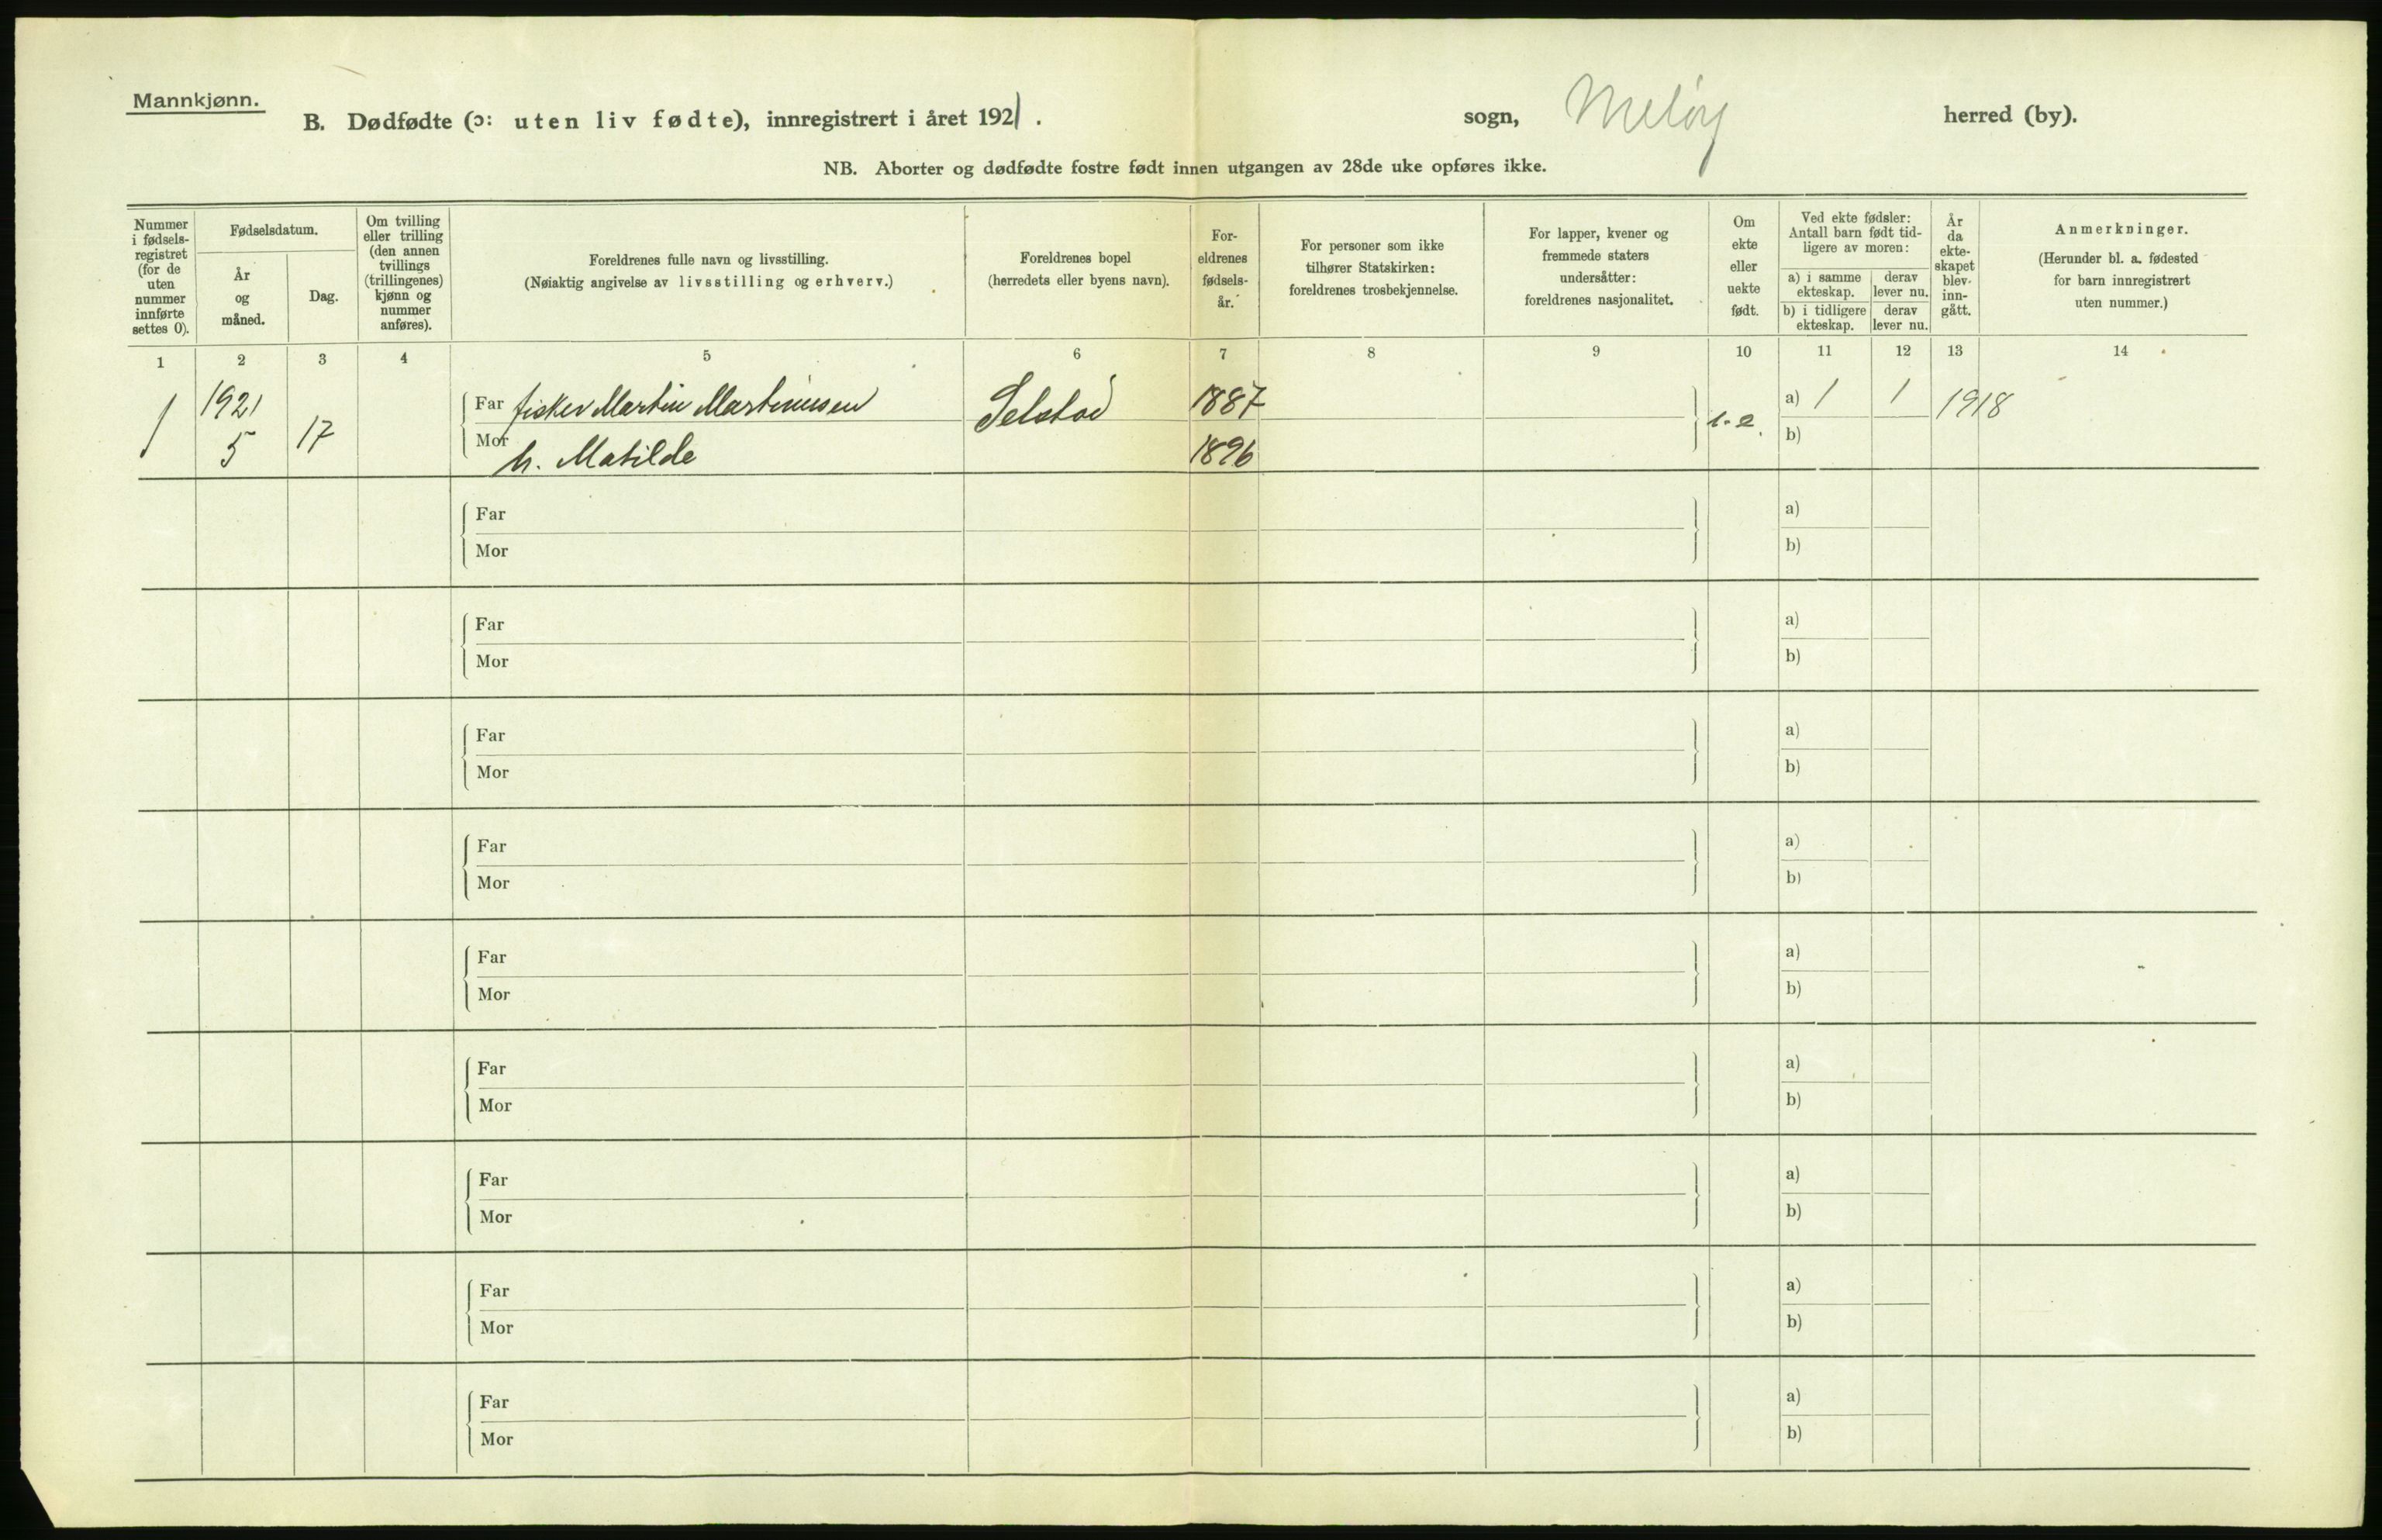 Mannkjønn.
B. Dødfødte (ɔ: uten liv fødte), innregistrert i året 1921.
sogn, Meløy herred (by).
NB. Aborter og dødfødte fostre født innen utgangen av 28de uke opføres ikke.
Nummer i fødsels-registret (for de uten nummer innførte settes 0).
Fødselsdatum.
År og måned.
Dag.
Om tvilling eller trilling (den annen tvillings (trillingenes) kjønn og nummer anføres).
Foreldrenes fulle navn og livsstilling.
(Nøiaktig angivelse av livsstilling og erhverv.)
Foreldrenes bopel
(herredets eller byens navn).
For-eldrenes fødsels-år.
For personer som ikke tilhører Statskirken: foreldrenes trosbekjennelse.
For lapper, kvener og fremmede staters undersåtter: foreldrenes nasjonalitet.
Om ekte eller uekte født.
Ved ekte fødsler: Antall barn født tid-ligere av moren:
a) i samme ekteskap.
derav lever nu.
b) i tidligere ekteskap.
derav lever nu.
År da ekte-skapet blev inn-gått.
Anmerkninger.
(Herunder bl. a. fødested for barn innregistrert uten nummer.)
1 2 3 4 5 6 7 8 9 10 11 12 13 14
1 1921 5 17
Far fisker Martin Martinusen Selstad 1887
Mor h. Matilde 1896
a) 1 1 1918
b)
Far a)
Mor b)
Far a)
Mor b)
Far a)
Mor b)
Far a)
Mor b)
Far a)
Mor b)
Far a)
Mor b)
Far a)
Mor b)
Far a)
Mor b)
Far a)
Mor b)